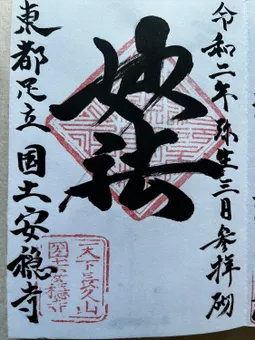 令和二年弥生三日参拝砌
妙法
東都足立 国土安穏寺
天下長久山
国土安穏寺